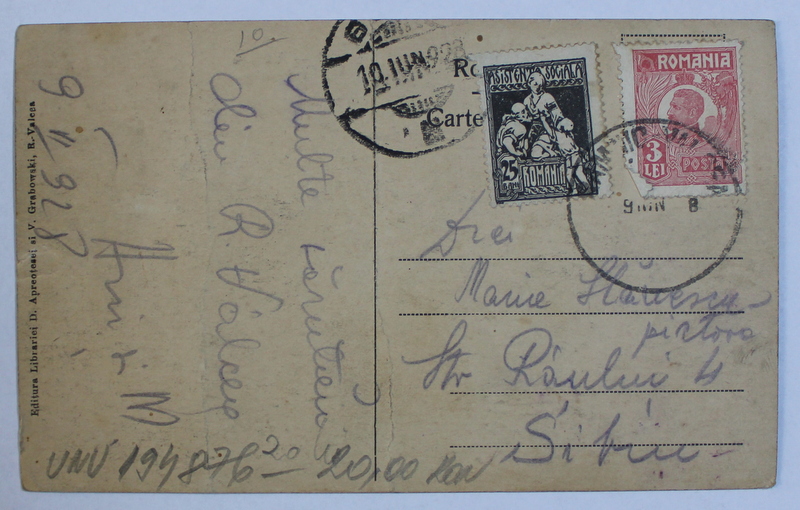 Editura Librariei D. Apreotesei si V. Grabowski, R.-Valcea
10.
9 VI 928
Multe sărutări
din R Vâlcea
10 IUN 928
Ro
Carte
ASISTENȚA SOCIALA
25
BANI
ROMANIA
ROMANIA
3
LEI
POSTA
9 IUN 8
Drei
Marie Stănescu
pictora
Str Râului 4
Sibiu
UNV 194876 20 20,00 Ron